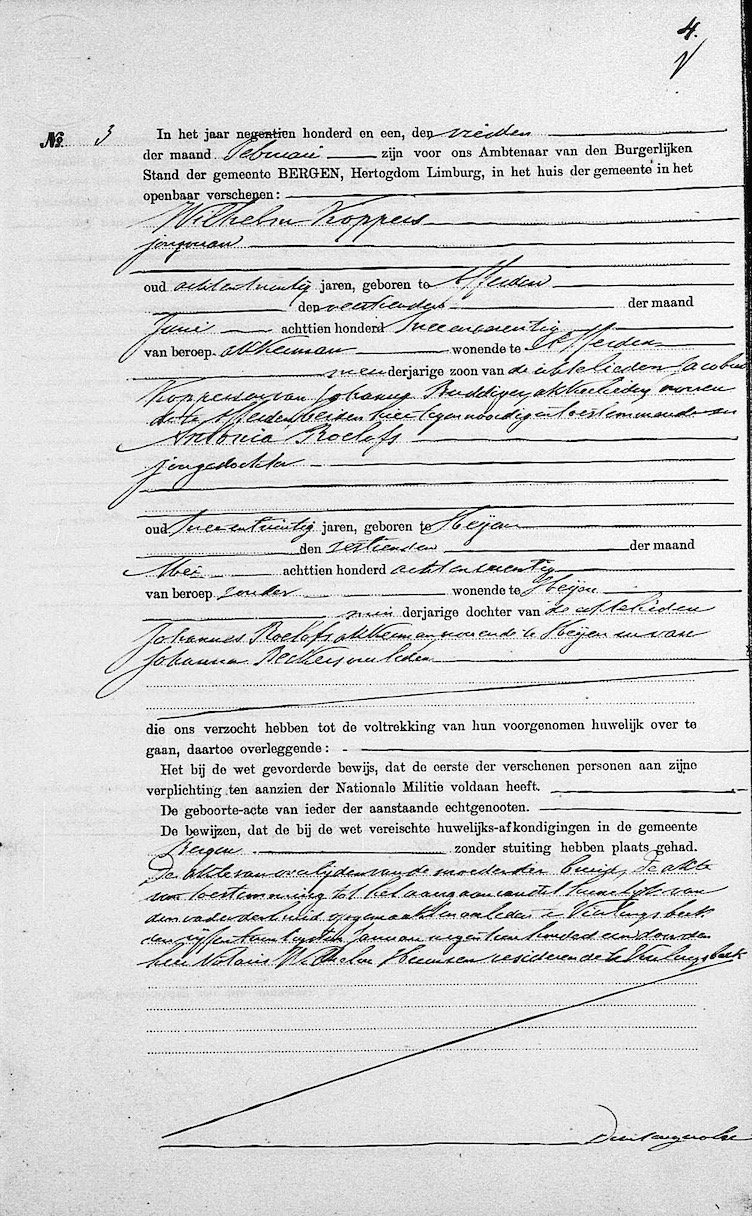 4.
V
No. 3 In het jaar negentien honderd en een, den vierden
der maand Februari zijn voor ons Ambtenaar van den Burgerlijken
Stand der gemeente BERGEN, Hertogdom Limburg, in het huis der gemeente in het
openbaar verschenen:
Wilhelm Koppers
jongman
oud achtentwintig jaren, geboren te Afferden
den veertienden der maand
Juni achttien honderd tweeenzeventig
van beroep akkerman wonende te Afferden
meerderjarige zoon van de echtelieden Jacobus
Koppers en van Johanna akkerlieden wonen
de te Afferden beiden hier tegenwoordig en toestemmende en
Antonia Roelofs
jongedochter
oud tweeentwintig jaren, geboren te Heijen
den zestienden der maand
Mei achttien honderd achtenzeventig
van beroep zonder wonende te Heijen
minderjarige dochter van de echtelieden
Johannes Roelofs akkerman wonende te Heijen en van
Johanna Beckers overleden
die ons verzocht hebben tot de voltrekking van hun voorgenomen huwelijk over te
gaan, daartoe overleggende: -
Het bij de wet gevorderde bewijs, dat de eerste der verschenen personen aan zijne
verplichting ten aanzien der Nationale Militie voldaan heeft.
De geboorte-acte van ieder der aanstaande echtgenooten.
De bewijzen, dat de bij de wet vereischte huwelijks-afkondigingen in de gemeente
Bergen zonder stuiting hebben plaats gehad.
De akte van overlijden van de moeder der bruid, De akte
van toestemming tot het aangaan van dit huwelijk van
den vader der bruid opgemaakt en verleden te Vierlingsbeek
den Januari negentien honderd een door den
heer Notaris Wilhelm resideerende te Vierlingsbeek